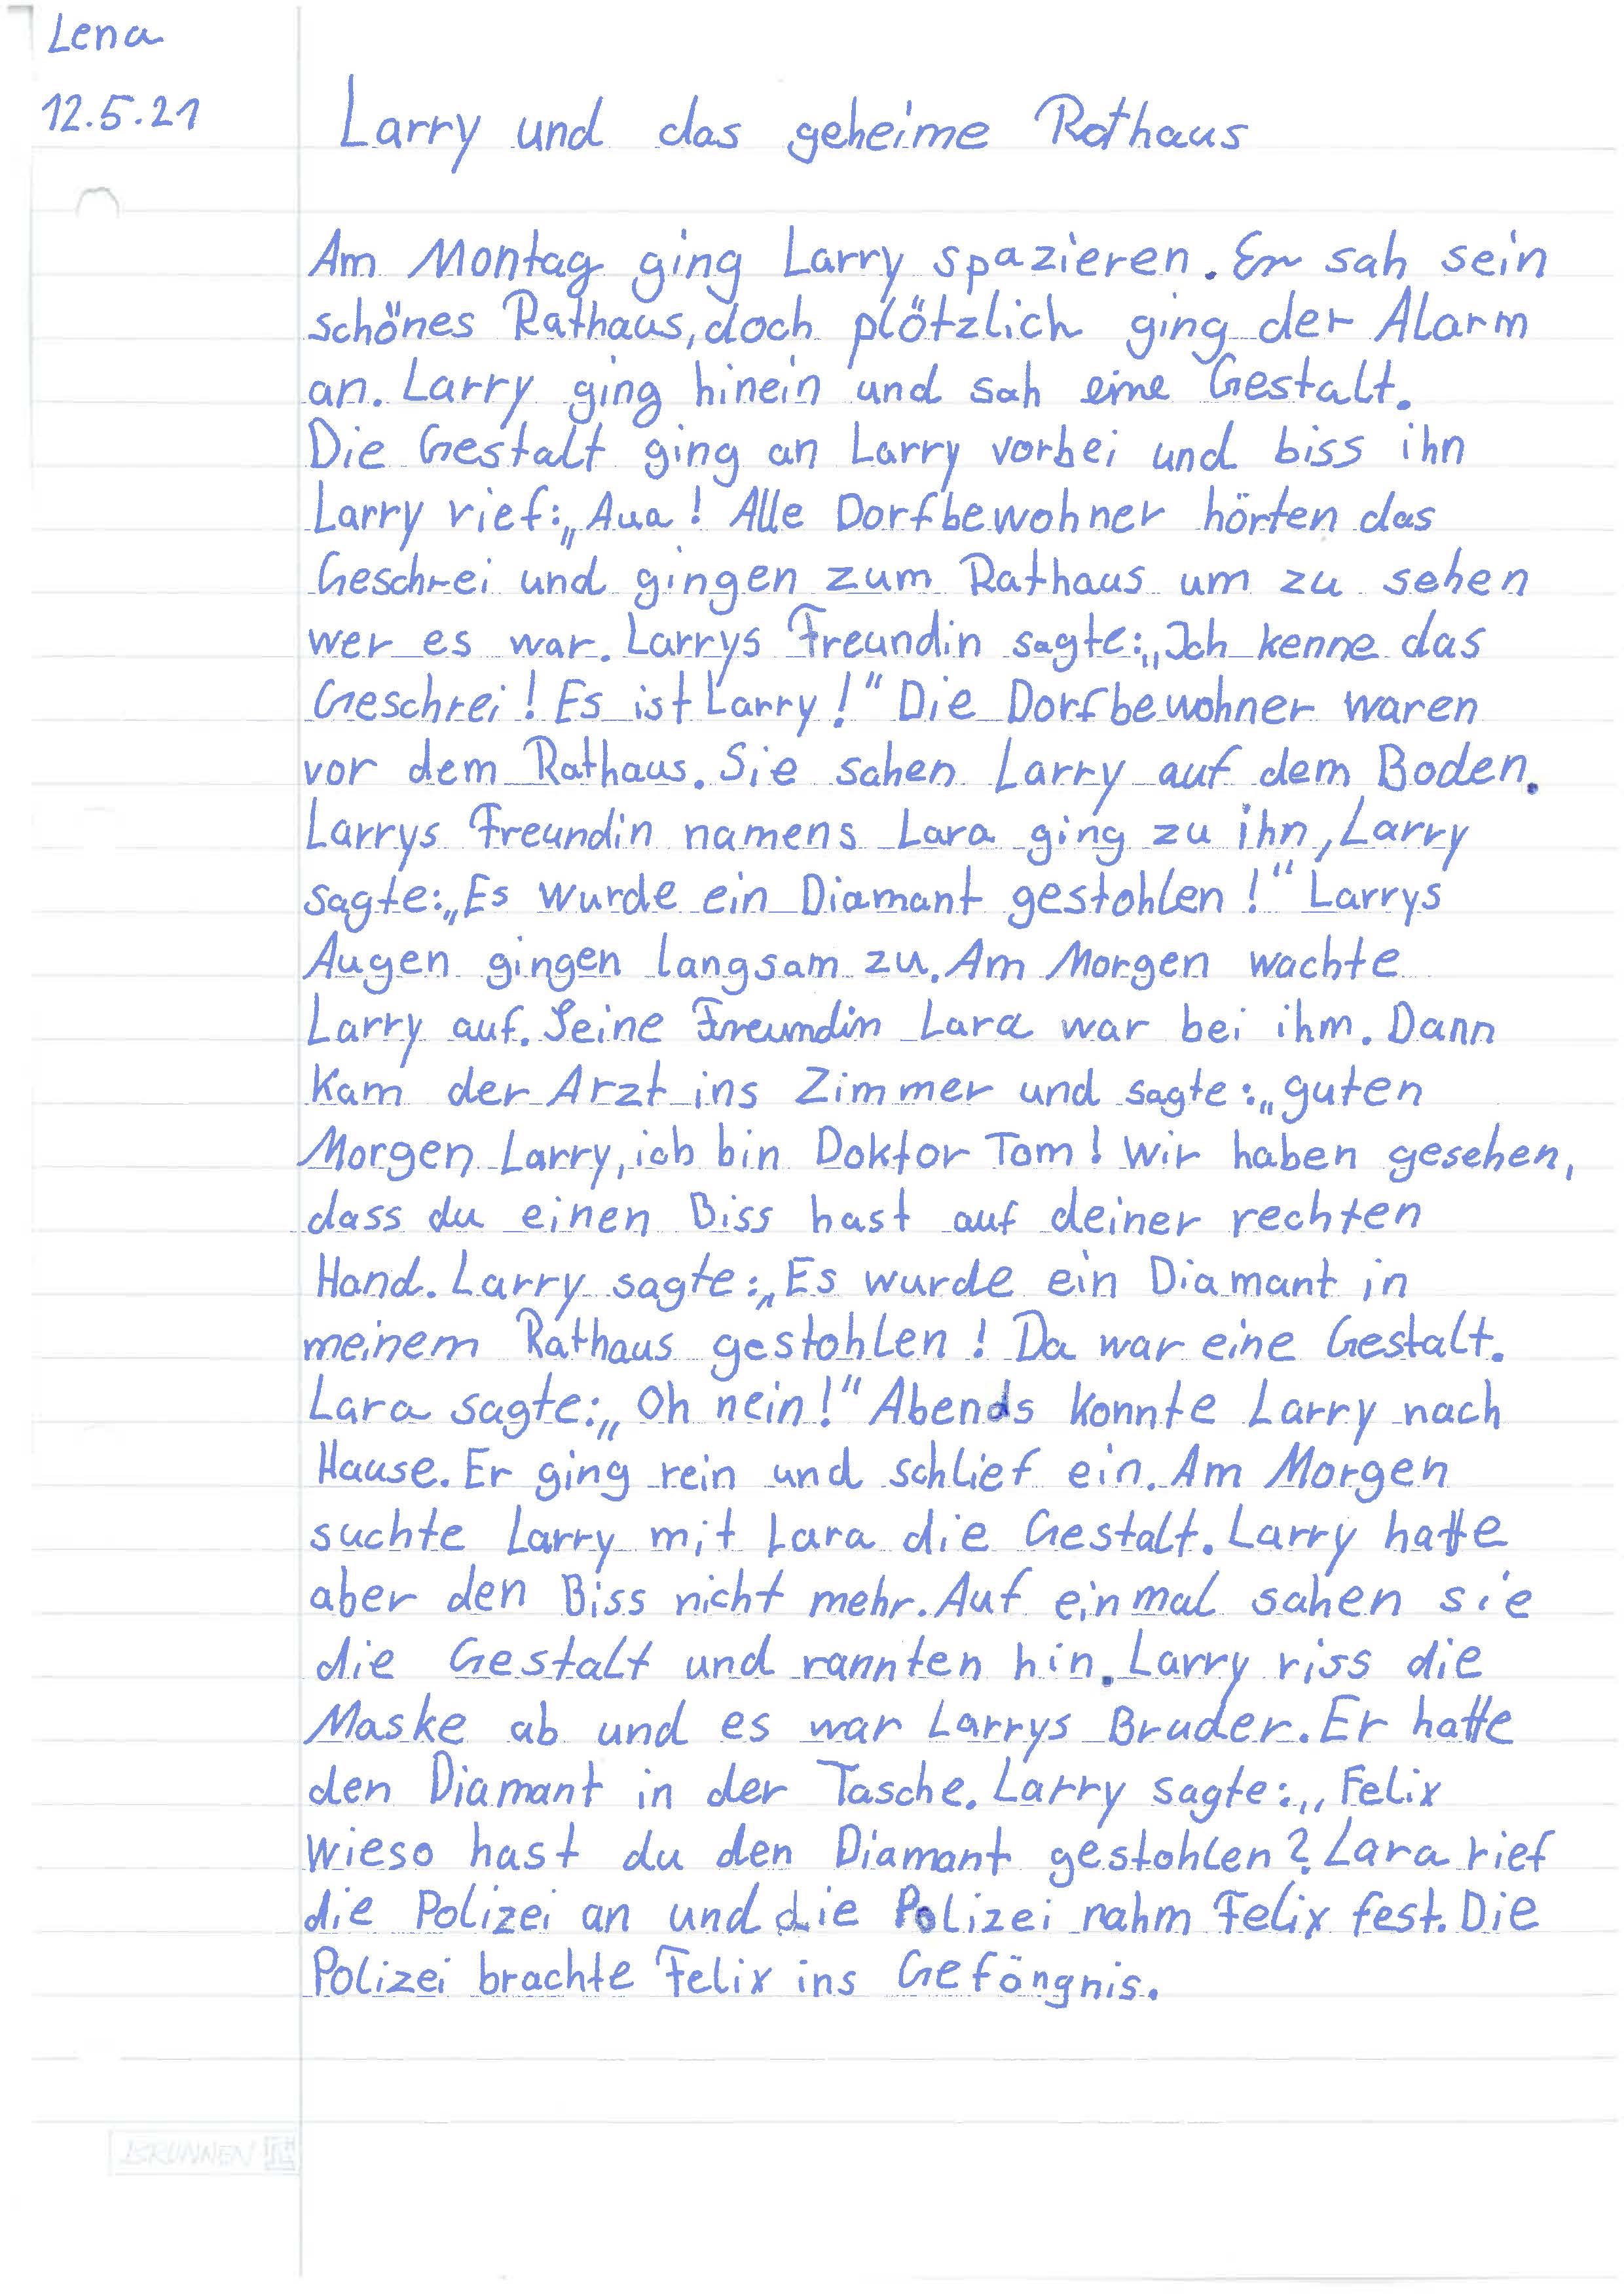 Lena
12.5.21
Larry und das geheime Rathaus
Am Montag ging Larry spazieren. Er sah sein
schönes Rathaus, doch plötzlich ging der Alarm
an. Larry ging hinein und sah eine Gestalt.
Die Gestalt ging an Larry vorbei und biss ihn
Larry rief: „Aua! Alle Dorfbewohner hörten das
Geschrei und gingen zum Rathaus um zu sehen
wer es war. Larrys Freundin sagte: „Ich kenne das
Geschrei! Es ist Larry!“ Die Dorfbewohner waren
vor dem Rathaus. Sie sahen Larry auf dem Boden.
Larrys Freundin namens Lara ging zu ihn, Larry
sagte: „Es wurde ein Diamant gestohlen!“ Larrys
Augen gingen langsam zu. Am Morgen wachte
Larry auf. Seine Freundin Lara war bei ihm. Dann
kam der Arzt ins Zimmer und sagte: „guten
Morgen Larry, ich bin Doktor Tom! Wir haben gesehen,
dass du einen Biss hast auf deiner rechten
Hand. Larry sagte: „Es wurde ein Diamant in
meinem Rathaus gestohlen! Da war eine Gestalt.
Lara sagte: „Oh nein!“ Abends konnte Larry nach
Hause. Er ging rein und schlief ein. Am Morgen
suchte Larry mit Lara die Gestalt. Larry hatte
aber den Biss nicht mehr. Auf einmal sahen sie
die Gestalt und rannten hin. Larry riss die
Maske ab und es war Larrys Bruder. Er hatte
den Diamant in der Tasche. Larry sagte: „Felix
wieso hast du den Diamant gestohlen? Lara rief
die Polizei an und die Polizei nahm Felix fest. Die
Polizei brachte Felix ins Gefängnis.
BRUNNEN